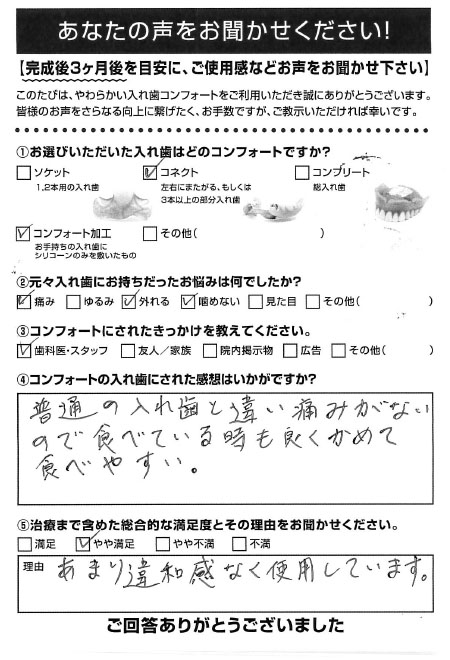 あなたの声をお聞かせください!
【完成後3ヶ月後を目安に、ご使用感などお声をお聞かせ下さい】
このたびは、やわらかい入れ歯コンフォートをご利用いただき誠にありがとうございます。
皆様のお声をさらなる向上に繋げたく、お手数ですが、ご教示いただければ幸いです。
①お選びいただいた入れ歯はどのコンフォートですか?
□ソケット ☑コネクト □コンプリート
1,2本用の入れ歯 左右にまたがる、もしくは 総入れ歯
3本以上の部分入れ歯
☑コンフォート加工 □その他( )
お手持ちの入れ歯に
シリコーンのみを敷いたもの
②元々入れ歯にお持ちだったお悩みは何でしたか?
☑痛み □ゆるみ ☑外れる ☑噛めない □見た目 □その他( )
③コンフォートにされたきっかけを教えてください。
☑歯科医・スタッフ □友人/家族 □院内掲示物 □広告 □その他( )
④コンフォートの入れ歯にされた感想はいかがですか?
普通の入れ歯と違い痛みがない
ので食べている時も良くかめて
食べやすい。
⑤治療まで含めた総合的な満足度とその理由をお聞かせください。
□満足 ☑やや満足 □やや不満 □不満
理由 あまり違和感なく使用しています。
ご回答ありがとうございました